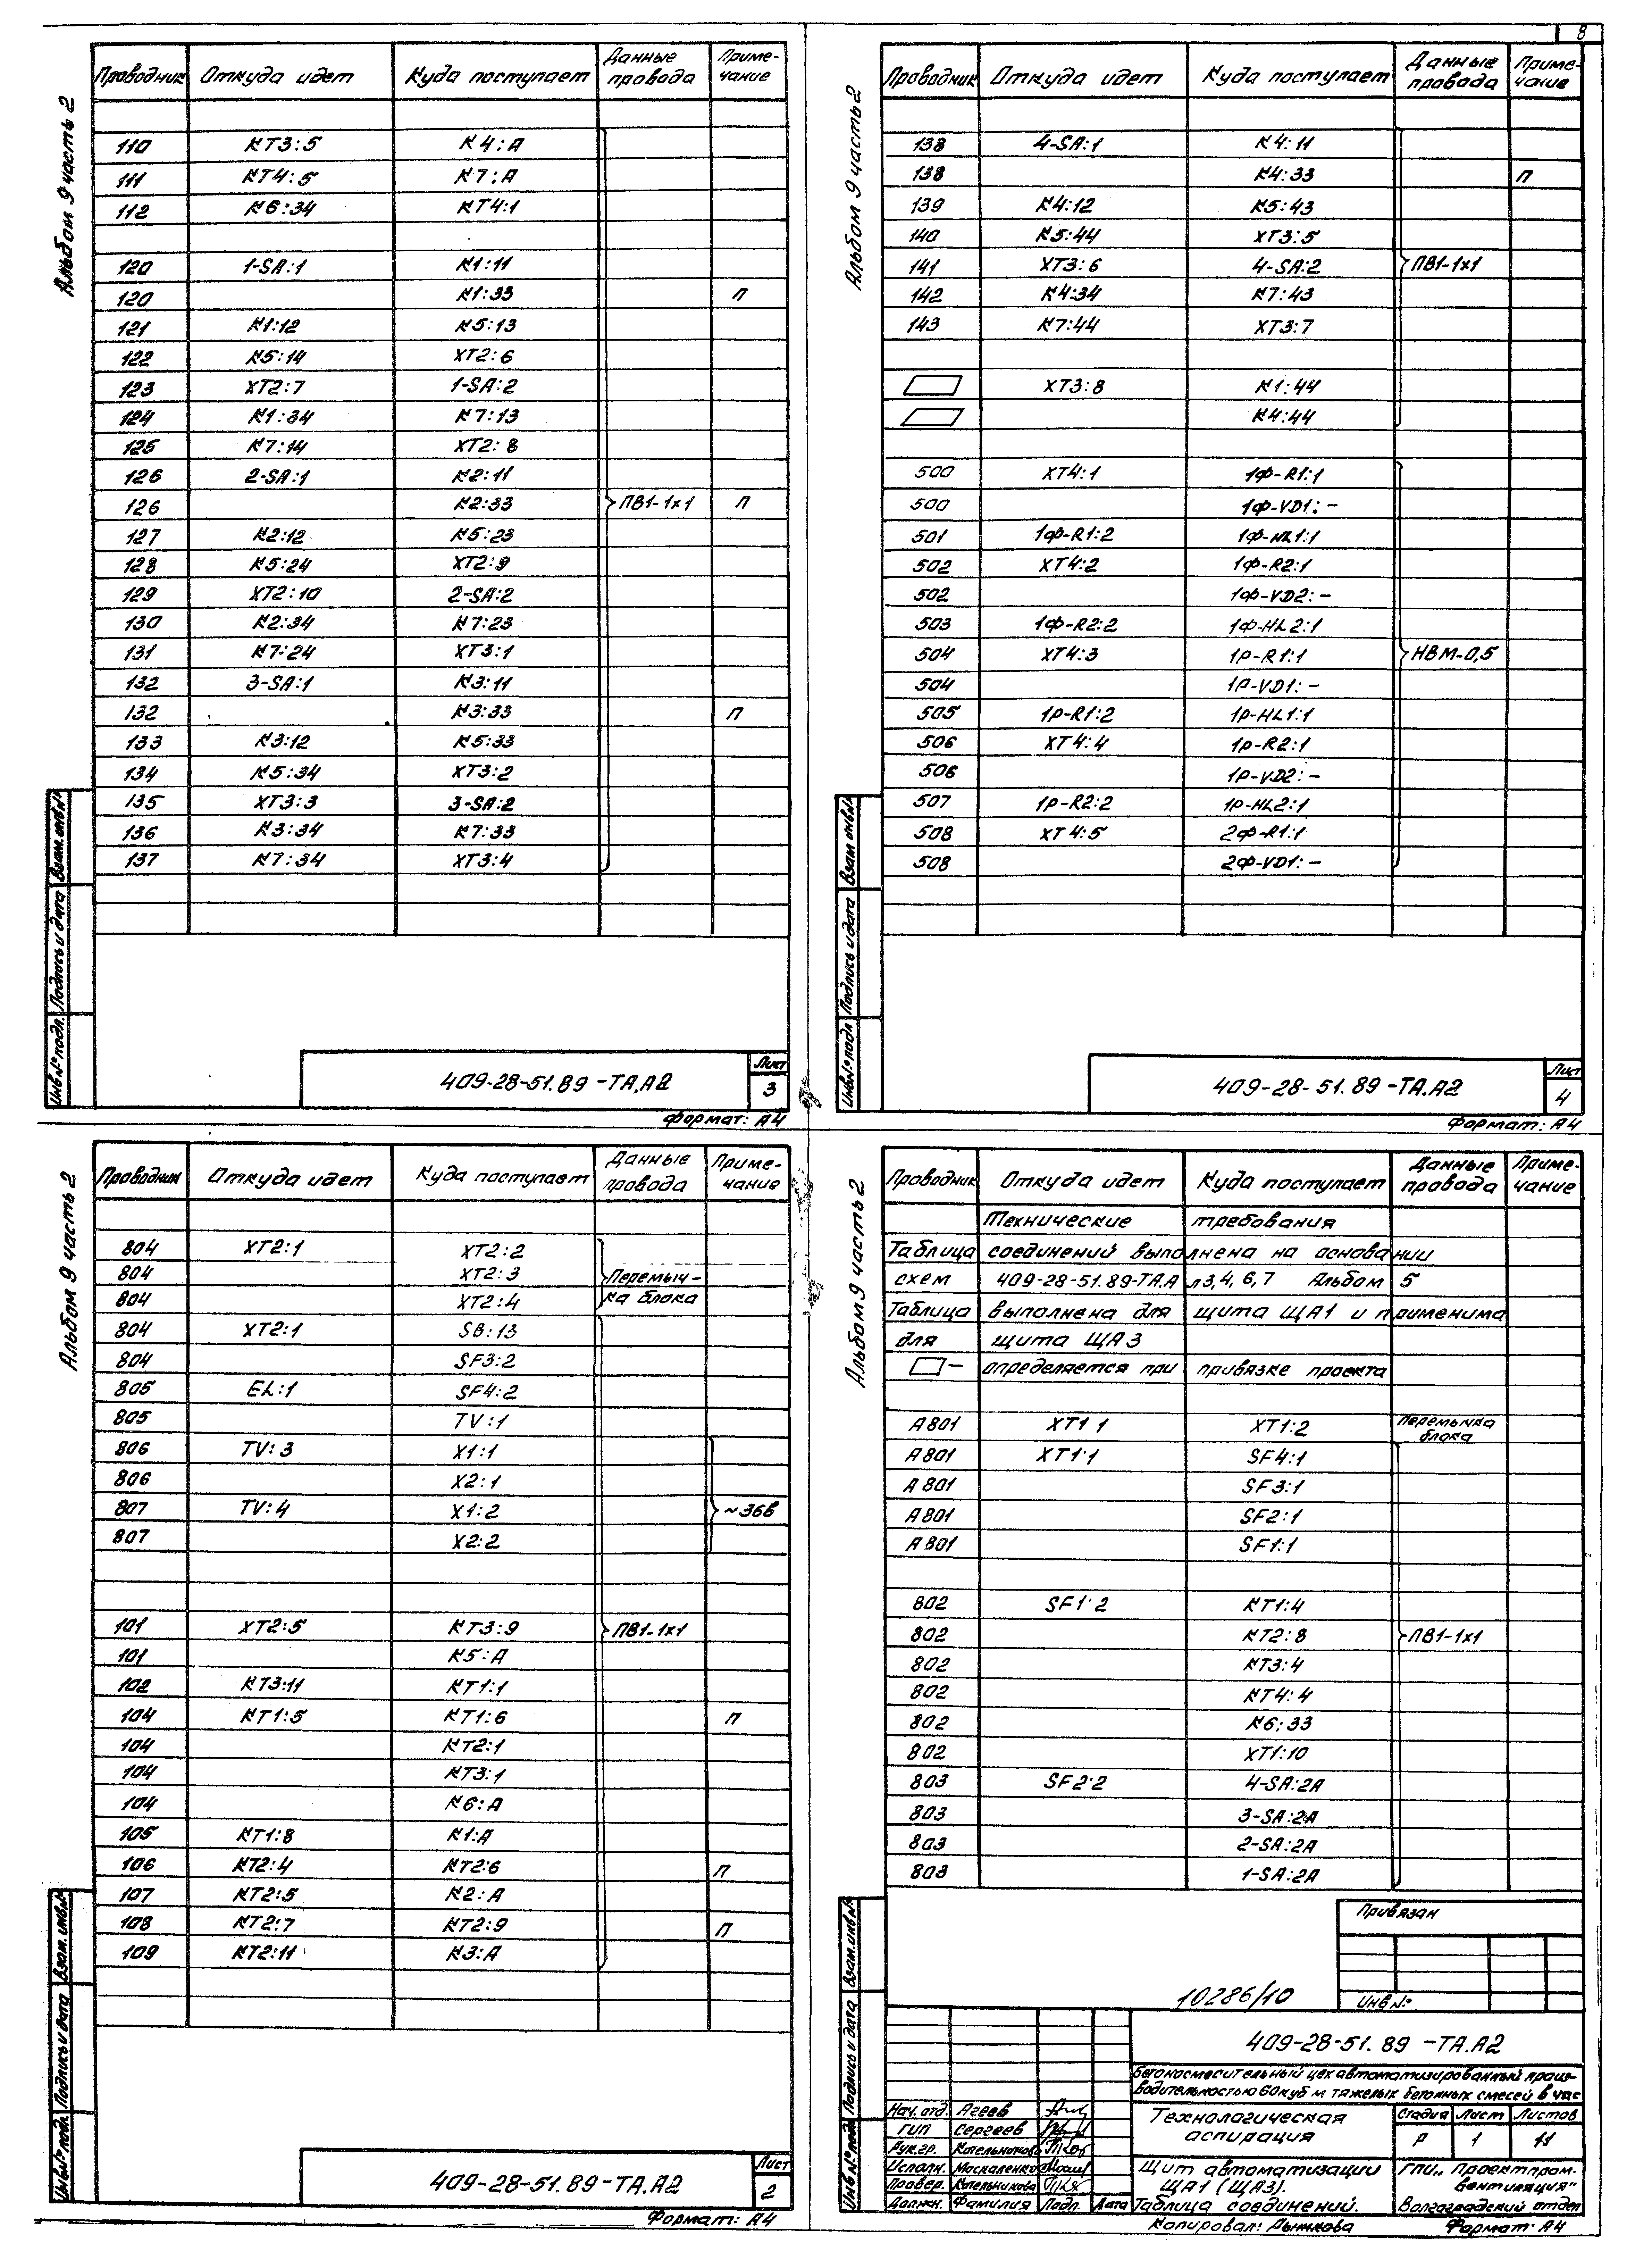 8
Альбом 9 часть 2
Проводник Откуда идет Куда поступает Данные провода Приме-чание
110 КТ3:5 К4:А
111 КТ4:5 К7:А
112 К6:34 КТ4:1
120 1-SA:1 К1:11
120 К1:33 П
121 К1:12 К5:13
122 К5:14 ХТ2:6
123 ХТ2:7 1-SA:2
124 К1:34 К7:13
125 К7:14 ХТ2:8
126 2-SA:1 К2:11
126 К2:33 ПВ1-1х1 П
127 К2:12 К5:23
128 К5:24 ХТ2:9
129 ХТ2:10 2-SA:2
130 К2:34 К7:23
131 К7:24 ХТ3:1
132 3-SA:1 К3:11
132 К3:33 П
133 К3:12 К5:33
134 К5:34 ХТ3:2
135 ХТ3:3 3-SA:2
136 К3:34 К7:33
137 К7:34 ХТ3:4
Инв.№ подл. Подпись и дата Взам. инв.№
409-28-51.89-ТА.А2
Лист
3
Формат: А4
Альбом 9 часть 2
Проводник Откуда идет Куда поступает Данные провода Приме-чание
138 4-SA:1 К4:11
138 К4:33 П
139 К4:12 К5:43
140 К5:44 ХТ3:5
141 ХТ3:6 4-SA:2 ПВ1-1х1
142 К4:34 К7:43
143 К7:44 ХТ3:7
ХТ3:8 К1:44
К4:44
500 ХТ4:1 1ф-R1:1
500 1ф-VD1:-
501 1ф-R1:2 1ф-HL1:1
502 ХТ4:2 1ф-R2:1
502 1ф-VD2:-
503 1ф-R2:2 1ф-HL2:1
504 ХТ4:3 1р-R1:1 НВМ-0,5
504 1р-VD1:-
505 1р-R1:2 1р-HL1:1
506 ХТ4:4 1р-R2:1
506 1р-VD2:-
507 1р-R2:2 1р-HL2:1
508 ХТ4:5 2ф-R1:1
508 2ф-VD1:-
Инв.№ подл Подпись и дата Взам инв.№
409-28-51.89-ТА.А2
Лист
4
Формат: А4
Альбом 9 часть 2
Проводник Откуда идет Куда поступает Данные провода Приме-чание
804 ХТ2:1 ХТ2:2
804 ХТ2:3 Перемыч-
804 ХТ2:4 ка блока
804 ХТ2:1 SB:13
804 SF3:2
805 EL:1 SF4:2
805 TV:1
806 TV:3 X1:1
806 X2:1
807 TV:4 X1:2 ~36В
807 X2:2
101 ХТ2:5 КТ3:9 ПВ1-1х1
101 К5:А
102 КТ3:11 КТ1:1
104 КТ1:5 КТ1:6 П
104 КТ2:1
104 КТ3:1
104 К6:А
105 КТ1:8 К1:А
106 КТ2:4 КТ2:6 П
107 КТ2:5 К2:А
108 КТ2:7 КТ2:9 П
109 КТ2:11 К3:А
Инв.№ подл. Подпись и дата Взам. инв.№
409-28-51.89-ТА.А2
Лист
2
Формат: А4
Альбом 9 часть 2
Проводник Откуда идет Куда поступает Данные провода Приме-чание
Технические требования
Таблица соединений выполнена на основании
схем 409-28-51.89-ТА.А л3,4,6,7 Альбом 5
Таблица выполнена для щита ЩА1 и применима
для щита ЩА3
— определяется при привязке проекта
А801 ХТ1 1 ХТ1:2 Перемычка блока
А801 ХТ1:1 SF4:1
А801 SF3:1
А801 SF2:1
А801 SF1:1
802 SF1:2 КТ1:4
802 КТ2:8 ПВ1-1х1
802 КТ3:4
802 КТ4:4
802 К6:33
802 ХТ1:10
803 SF2:2 4-SA:2А
803 3-SA:2А
803 2-SA:2А
803 1-SA:2А
Привязан
Инв №
10286/10
Инв №подл. Подпись и дата Взам.инв.№
409-28-51.89-ТА.А2
Бетоносмесительный цех автоматизированный произ-
водительностью 60куб м тяжелых бетонных смесей в час
Нач.отд. Агеев
ГИП Сергеев
Рук.гр. Котельникова
Исполн. Москаленко
Провер. Котельникова
Должн. Фамилия Подп. Дата
Технологическая аспирация
Стадия Лист Листов
Р 1 11
Щит автоматизации
ЩА1 (ЩА3).
Таблица соединений.
ГПИ „Проектпром-
вентиляция"
Волгоградский отдел
Копировал: Рыжкова Формат: А4